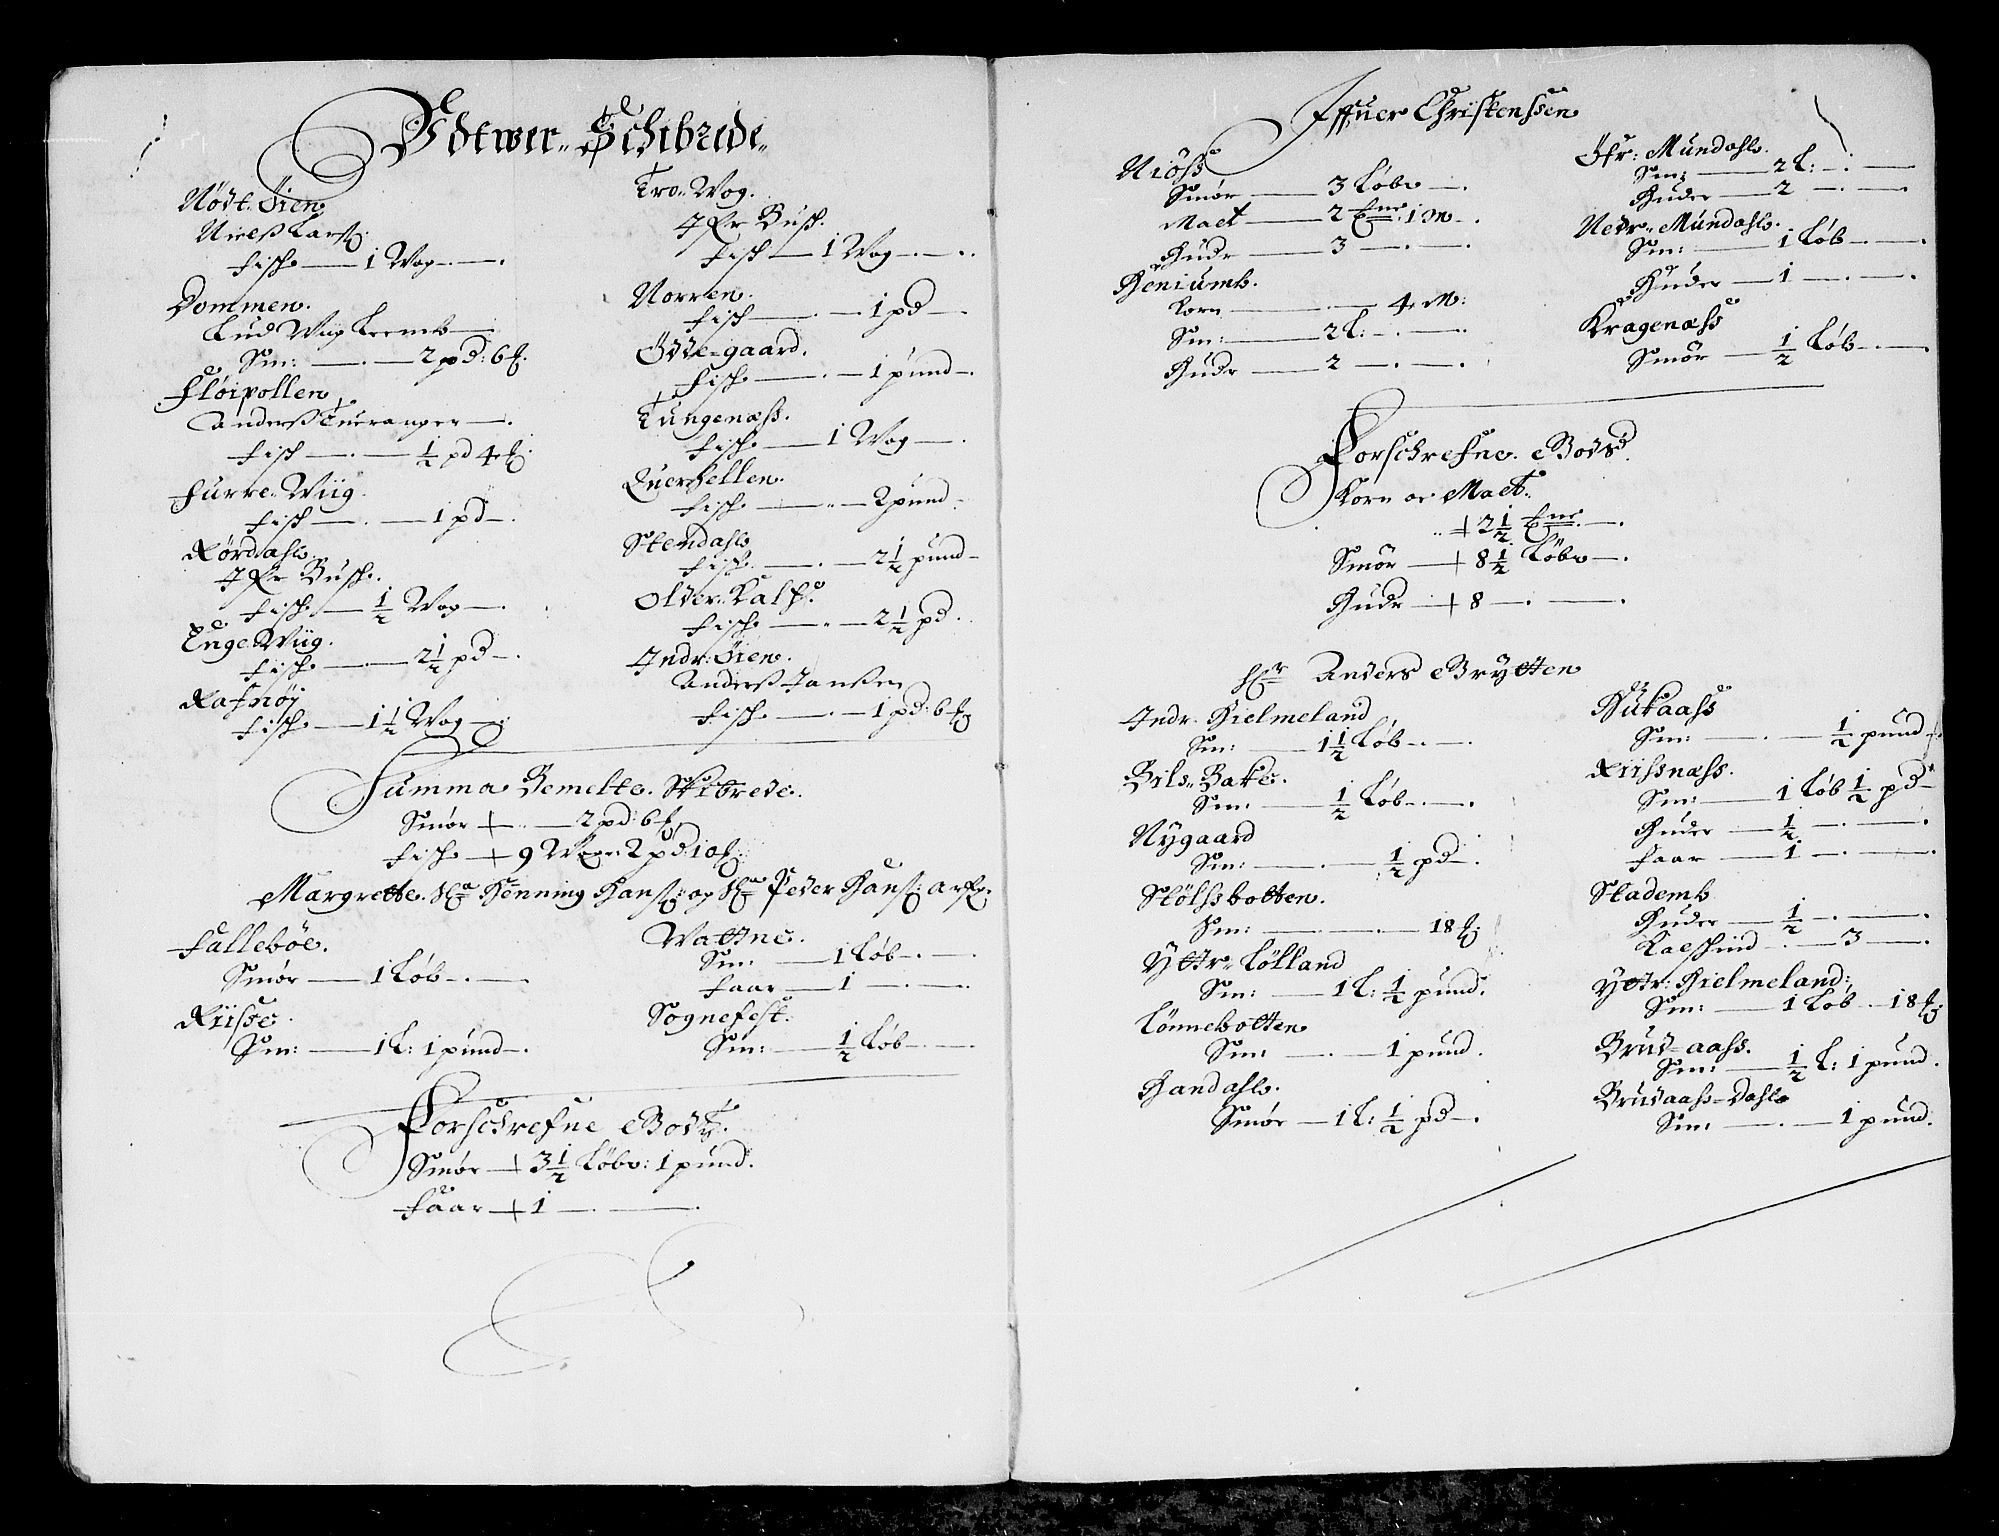 Udtwer Schibrede
Nödt: Öien
Nielß Larß:
Fisch 1 Wog
Dommen.
Lud Wiig
Sm: 2 pd: 6
Fløipollen
Anderß Tueranger
Fisch ½ pd 4
Furre Wiig.
Fisch 1 pd
Rördahl.
Jfr Busch.
Fisch ½ Wog
Enge Wiig.
Fisch 2½ pd
Rafnöj
Fisch 1½ Wog
Tro-Wog.
Jfr Busch.
Fisch 1 Wog
Norren.
Fisch 1 pd
Ödde-gaard.
Fisch 1 pund
Tungenæss.
Fisch 1 Wog
Quer hellen.
Fisch 2 pund
Stendahl
Fisch 2½ pund
Older Kalf.
Fisch 2½ pd
Indr: Öien.
Anderß Janßen
Fisch 1 pd: 6
Summa Bemelte Skibrede.
Smör + 2 pd: 6
Fisch + 9 Woger 2 pd 10
Margrette. Henning Hanß: og Peder Hanß:
Fallebøe.
Smör 1 Løb
Riise.
Sm: 1 L: 1 pund
Wattne.
Sm: 1 Løb
Faar 1
Sognefest.
Sm: ½ Løb
Forschrefne Godtz.
Smör + 3½ Løbe: 1 pund.
Faar + 1
Iffuer Christenssen
Niöss
Smör 3 Løbe
Maelt 2 1 M
Hude 3
Heniumb.
Korn 4 M:
Sm: 2 L:
Hude 2
Öfr: Mundahl.
Sm: 2 L:
Huder 2
Nedr: Mundahl.
Sm: 1 Løb
Huder 1
Kragenæss
Smör ½ Løb
Forschrefne Gods.
Korn oc Maelt.
+ 2½
Smör + 8½ Løbe
Hude + 8
Hr Anders Grytten
Indr. Hielmeland
Sm: 1½ Løb
Bils-Bake.
Sm: ½ Løb
Nygaard
Sm: ½ pd
Stölssbotten.
Sm: 18
Yttr: Lölland
Sm: 1 L: ½ pund.
Lönnebotten
Sm: 1 pund.
Handahl.
Smör 1 L: ½ pd
Sm: ½ pund
Riissnæss.
Sm: 1 Løb ½ pd
Huder ½
Faar 1
Stademb
Huder ½
Kalschind 3
Yttr: Hielmeland.
Sm: 1 Løb 18
Brud-aass.
Sm: ½ L: 1 pund.
Brudaass-Dahl
Sm: 1 pund.